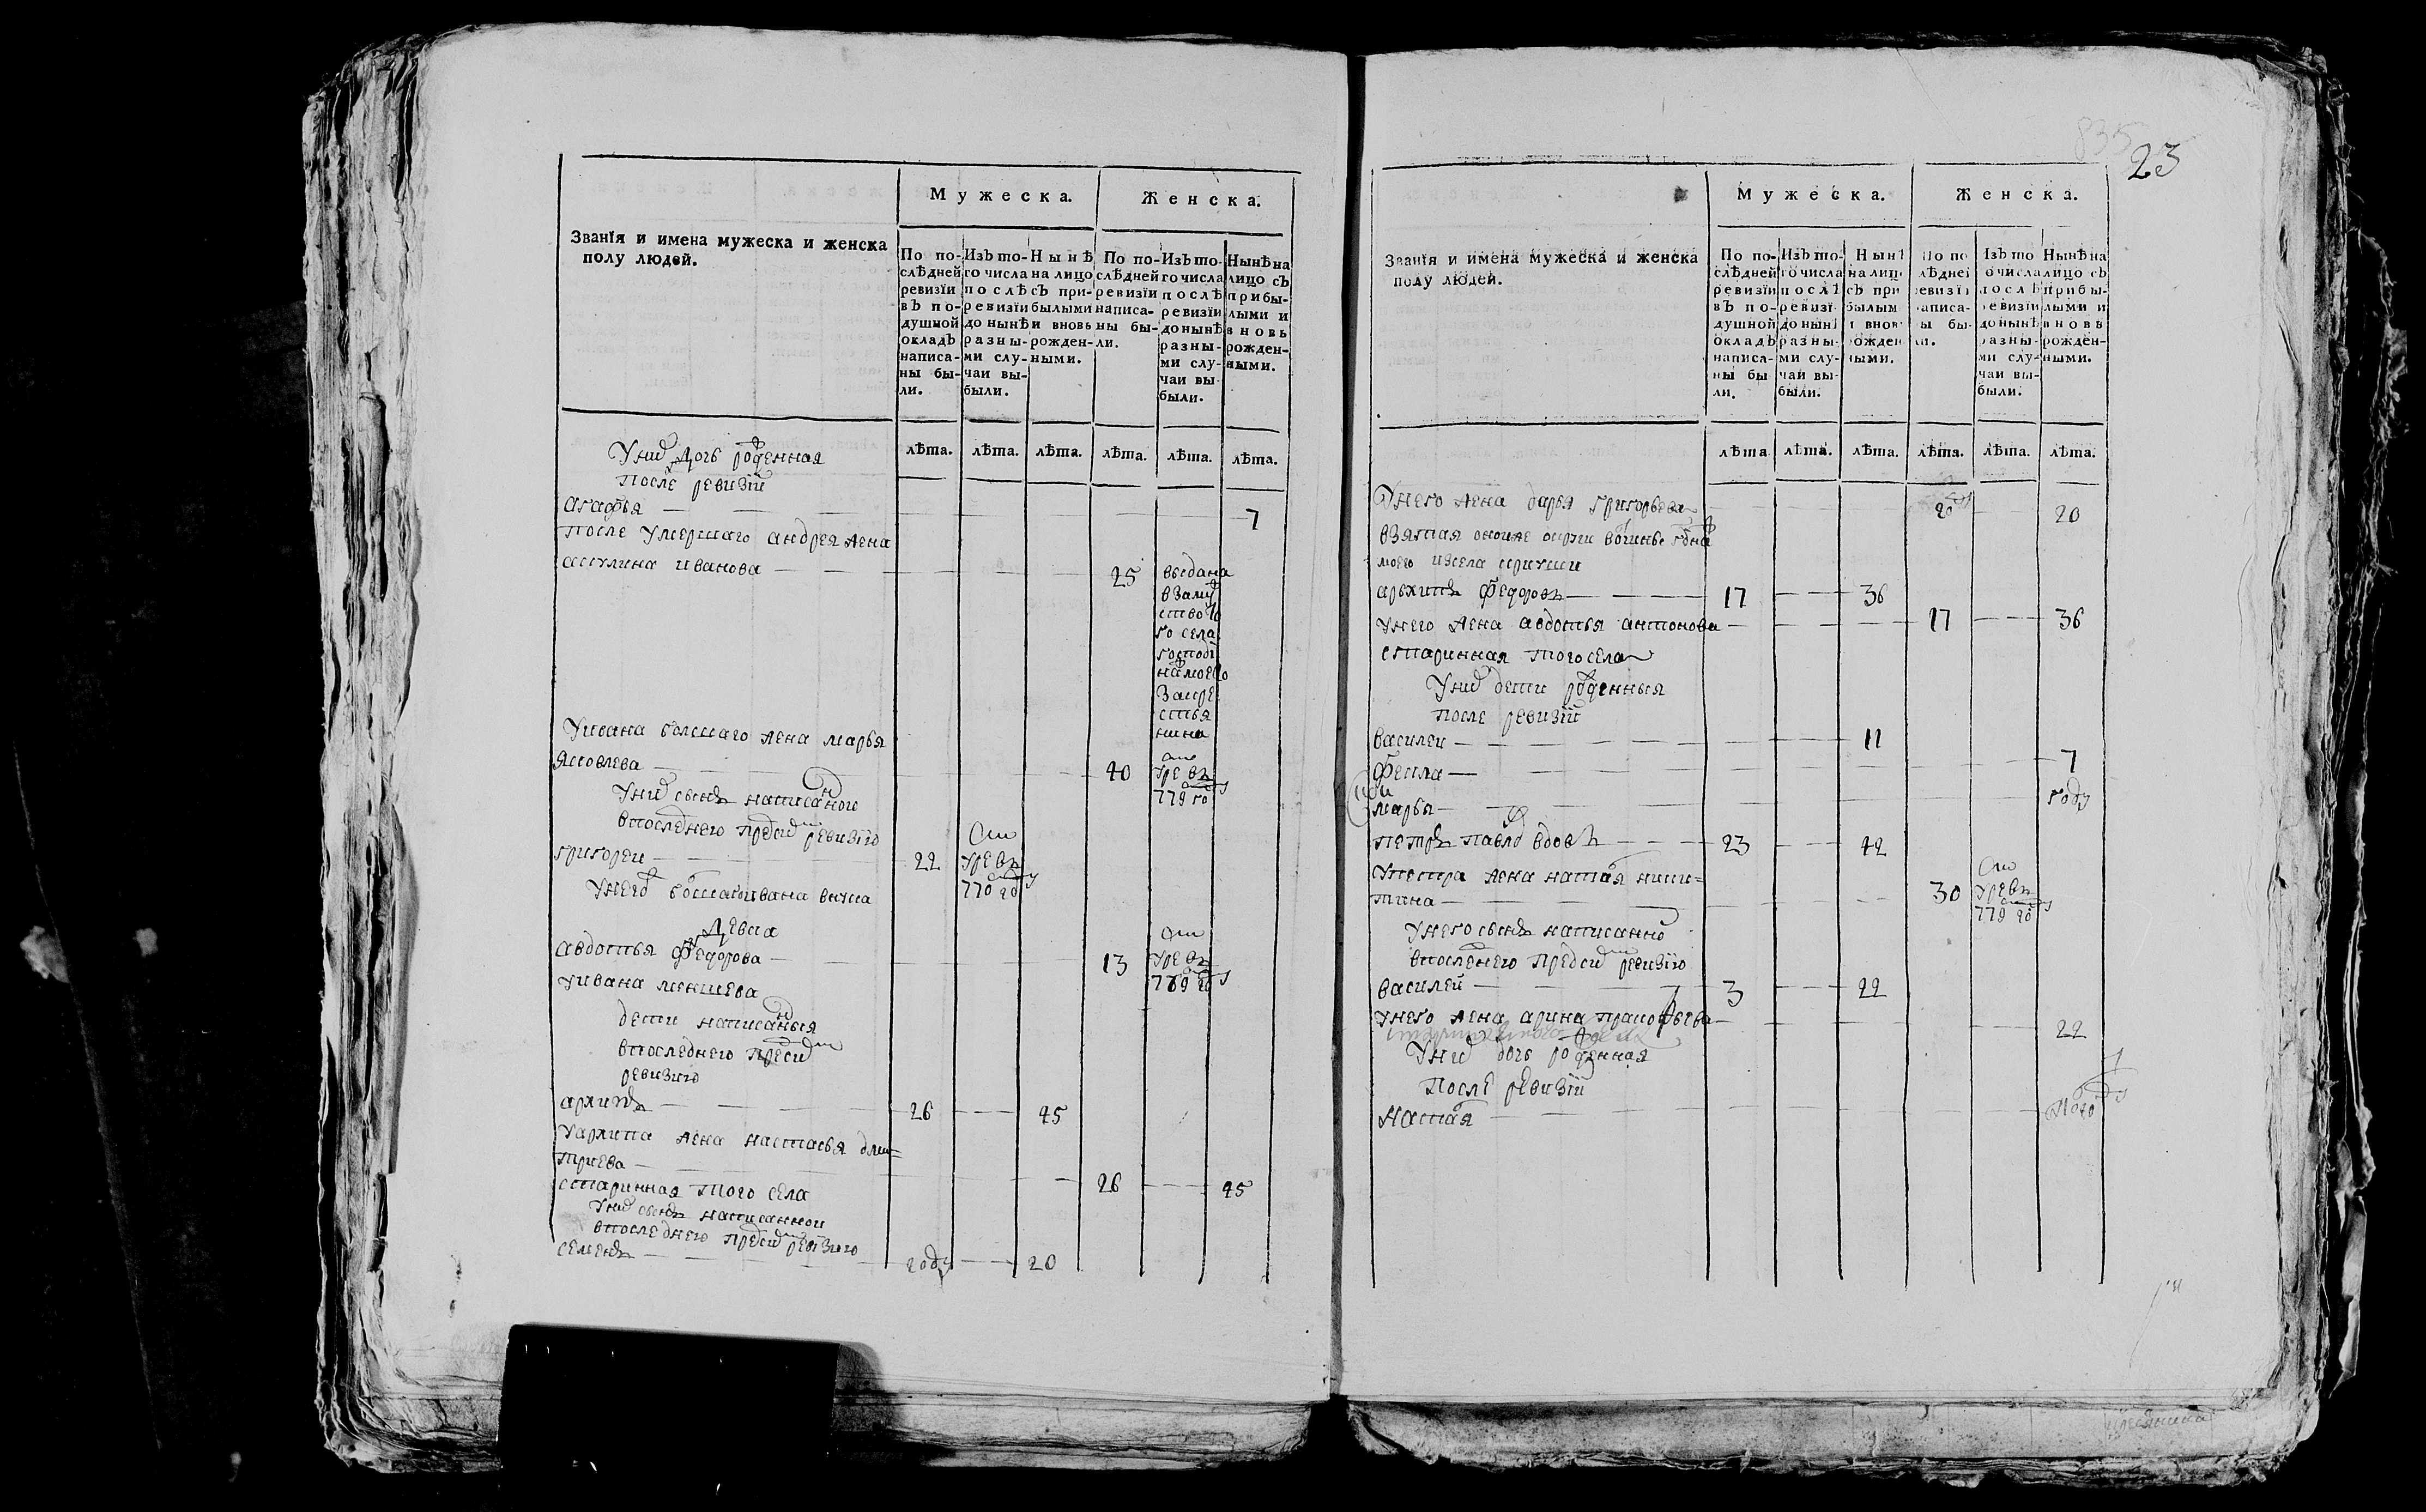 Мужеска.
Женска.
Званїя и имена мужеска и женска
полу людей.
По по-
слѣдней
ревизїи
въ по-
душной
окладъ
написа-
ны бы-
ли.
Изъ то-
го числа
послѣ
ревизїи
до нынѣ
разны-
ми слу-
чаи вы-
были.
Нынѣ
на лицо
съ при-
былыми
и вновь
рожден-
ными.
По по-
слѣдней
ревизїи
написа-
ны бы-
ли.
Изъ то-
го числа
послѣ
ревизїи
до нынѣ
разны-
ми слу-
чаи вы-
были.
Нынѣ на
лицо съ
прибы-
лыми и
вновь
рожден-
ными.
лѣта. лѣта. лѣта. лѣта. лѣта. лѣта.
Уних дочь рожденная
после ревизїи
Агафья 7
после умершаго андрея жена
акулина иванова 25 выдана
взаму
ство то
го села
господи
на моего
за кре
стья
нина
Уивана болшаго жена марья
яковлева 40 ум
ре въ
779 го
Уних сынъ написаной
впоследнею пред сим ревизїю
григореи 22 ум
ре въ
770 го
Унего болшаго ивана внука
девка
авдотья федорова 13 ум
ре въ
779 го
уивана меншева
дети написаныя
впоследнею пред сим
ревизию
архипъ 26 45
Уархипа жена настасья дми=
триева 26 45
старинная того села
Уних сынъ написанной
впоследнею пред сим ревизию
семенъ году 20
835
23
Мужеска.
Женска.
Званїя и имена мужеска и женска
полу людей.
По по-
слѣдней
ревизїи
въ по-
душной
окладъ
написа-
ны бы
ли.
Изъ то-
го числа
послѣ
ревизї
до нынѣ
разны-
ми слу-
чаи вы-
были.
Нынѣ
на лицо
съ при
былым
и внов
рожден
ными.
По по
лѣдней
ревизїи
написа-
ны бы-
ли.
Изъ то
о числа
послѣ
ревизїи
до нынѣ
разны-
ми слу-
чаи вы-
были.
Нынѣ на
лицо съ
прибы-
лыми и
вновь
рожден-
ными.
лѣта. лѣта. лѣта. лѣта. лѣта. лѣта.
Унего жена дарья григорьева 20 20
взятая
моего изсела
архипъ федоровъ 17 36
унего жена авдотья антонова 17 36
старинная того села
Уних дети рожденныя
после ревизїи
василеи 11
фекла 7
марья году
петръ павлов вдовъ 23 42
Упетра жена наталья ники=
тина 30 ум
ре въ
779 го
Унего сынъ написанной
впоследнею пред сим ревизїю
василей 3 22
унего жена арина прокофьева 22
Уних дочь рожденная
после ревизїи
наталья